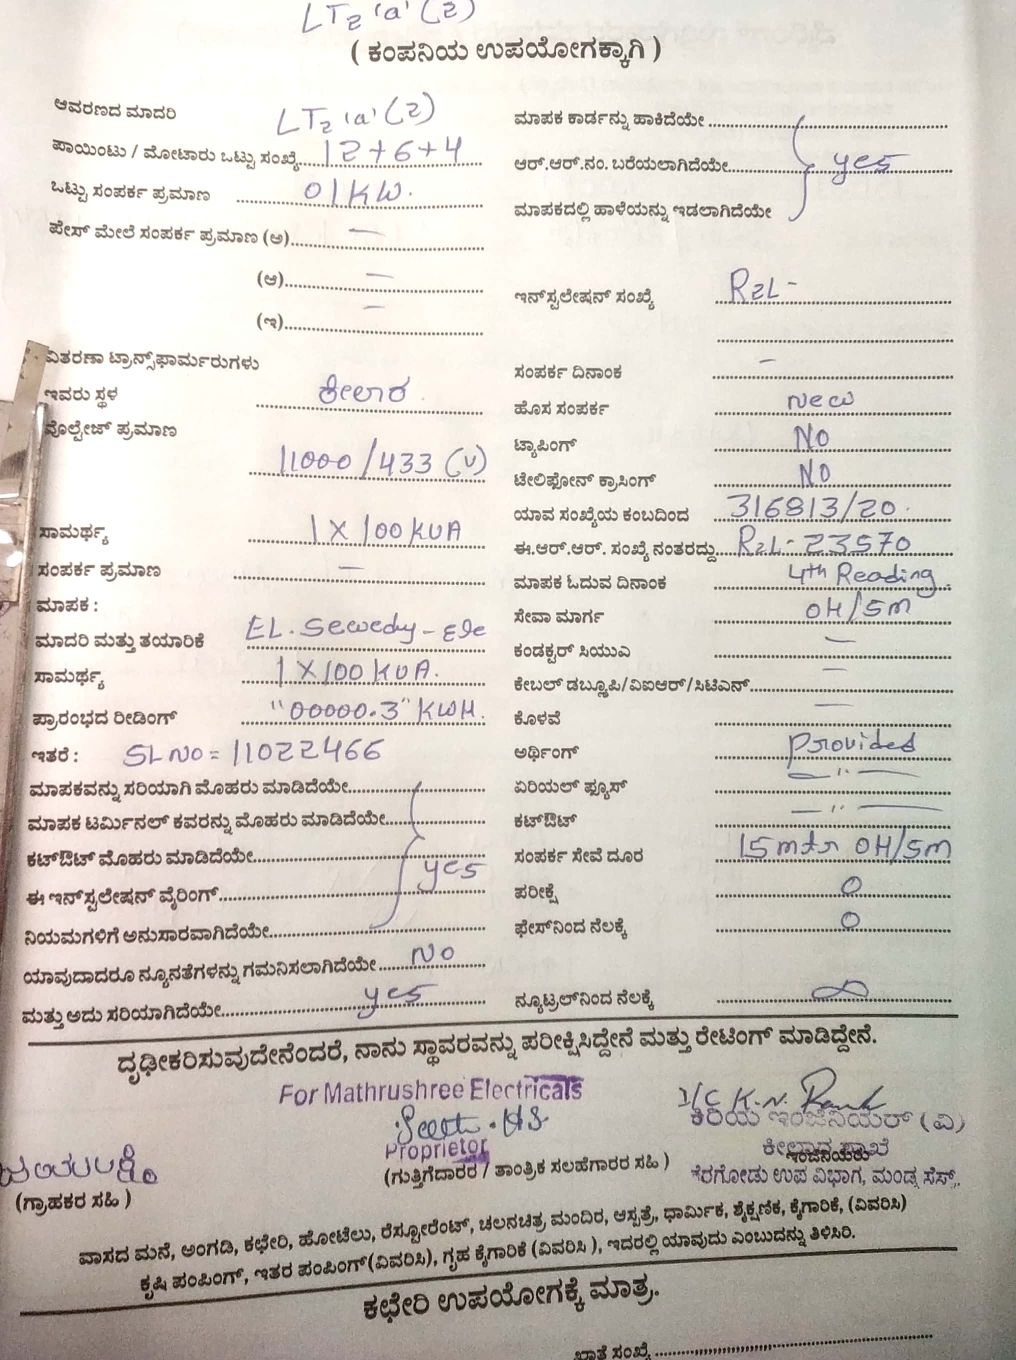 LT2 'a' (2)
( ಕಂಪನಿಯ ಉಪಯೋಗಕ್ಕಾಗಿ )
ಆವರಣದ ಮಾದರಿ LT2 'a' (2)
ಪಾಯಿಂಟು / ಮೋಟಾರು ಒಟ್ಟು ಸಂಖ್ಯೆ 12+6+4
ಒಟ್ಟು ಸಂಪರ್ಕ ಪ್ರಮಾಣ 01KW.
ಪೇಸ್ ಮೇಲೆ ಸಂಪರ್ಕ ಪ್ರಮಾಣ (ಅ) —
(ಆ) —
(ಇ) —
ವಿತರಣಾ ಟ್ರಾನ್ಸ್‌ಫಾರ್ಮರುಗಳು
ಇವರು ಸ್ಥಳ ಕೀಲಾರ
ವೊಲ್ಟೇಜ್ ಪ್ರಮಾಣ
11000/433 (V)
ಸಾಮರ್ಥ್ಯ 1 X 100 KVA
ಸಂಪರ್ಕ ಪ್ರಮಾಣ —
ಮಾಪಕ :
ಮಾದರಿ ಮತ್ತು ತಯಾರಿಕೆ EL. Sewedy - Ele
ಸಾಮರ್ಥ್ಯ 1 X 100 KVA.
ಪ್ರಾರಂಭದ ರೀಡಿಂಗ್ "00000.3" KWH.
ಇತರೆ : SL NO = 11022466
ಮಾಪಕವನ್ನು ಸರಿಯಾಗಿ ಮೊಹರು ಮಾಡಿದೆಯೇ
ಮಾಪಕ ಟರ್ಮಿನಲ್ ಕವರನ್ನು ಮೊಹರು ಮಾಡಿದೆಯೇ
ಕಟ್‌ಔಟ್ ಮೊಹರು ಮಾಡಿದೆಯೇ yes
ಈ ಇನ್‌ಸ್ಟಲೇಷನ್ ವೈರಿಂಗ್
ನಿಯಮಗಳಿಗೆ ಅನುಸಾರವಾಗಿದೆಯೇ
ಯಾವುದಾದರೂ ನ್ಯೂನತೆಗಳನ್ನು ಗಮನಿಸಲಾಗಿದೆಯೇ No
ಮತ್ತು ಅದು ಸರಿಯಾಗಿದೆಯೇ yes
ಮಾಪಕ ಕಾರ್ಡನ್ನು ಹಾಕಿದೆಯೇ
ಆರ್.ಆರ್.ನಂ. ಬರೆಯಲಾಗಿದೆಯೇ yes
ಮಾಪಕದಲ್ಲಿ ಹಾಳೆಯನ್ನು ಇಡಲಾಗಿದೆಯೇ
ಇನ್‌ಸ್ಟಲೇಷನ್ ಸಂಖ್ಯೆ R2L -
ಸಂಪರ್ಕ ದಿನಾಂಕ —
ಹೊಸ ಸಂಪರ್ಕ New
ಟ್ಯಾಪಿಂಗ್ NO
ಟೇಲಿಫೋನ್ ಕ್ರಾಸಿಂಗ್ NO
ಯಾವ ಸಂಖ್ಯೆಯ ಕಂಬದಿಂದ 316813/20.
ಈ.ಆರ್.ಆರ್. ಸಂಖ್ಯೆ ನಂತರದ್ದು R2L - 23570
ಮಾಪಕ ಓದುವ ದಿನಾಂಕ 4th Reading.
ಸೇವಾ ಮಾರ್ಗ OH/SM
ಕಂಡಕ್ಟರ್ ಸಿಯುಎ —
ಕೇಬಲ್ ಡಬ್ಲ್ಯೂಪಿ/ವಿಐಆರ್/ಸಿಟಿಎನ್ —
ಕೊಳವೆ —
ಅರ್ಥಿಂಗ್ Provided
ಏರಿಯಲ್ ಫ್ಯೂಸ್ — " —
ಕಟ್‌ಔಟ್ — " —
ಸಂಪರ್ಕ ಸೇವೆ ದೂರ 15 mtr OH/SM
ಪರೀಕ್ಷೆ 0
ಫೇಸ್‌ನಿಂದ ನೆಲಕ್ಕೆ 0
ನ್ಯೂಟ್ರಲ್‌ನಿಂದ ನೆಲಕ್ಕೆ ∞
ದೃಢೀಕರಿಸುವುದೇನೆಂದರೆ, ನಾನು ಸ್ಥಾವರವನ್ನು ಪರೀಕ್ಷಿಸಿದ್ದೇನೆ ಮತ್ತು ರೇಟಿಂಗ್ ಮಾಡಿದ್ದೇನೆ.
For Mathrushree Electricals
Proprietor
(ಗುತ್ತಿಗೆದಾರರ / ತಾಂತ್ರಿಕ ಸಲಹೆಗಾರರ ಸಹಿ )
(ಗ್ರಾಹಕರ ಸಹಿ )
I/C K.N.
ಕಿರಿಯ ಇಂಜಿನಿಯರ್ (ವಿ)
ಕೀಲಾರ ಶಾಖೆ
ಇಂಜಿನಿಯರು
ಕೆರಗೋಡು ಉಪ ವಿಭಾಗ, ಮಂಡ್ಯ ಸೆಸ್ಕ್.
ವಾಸದ ಮನೆ, ಅಂಗಡಿ, ಕಛೇರಿ, ಹೋಟೆಲು, ರೆಸ್ಟೋರೆಂಟ್, ಚಲನಚಿತ್ರ ಮಂದಿರ, ಆಸ್ಪತ್ರೆ, ಧಾರ್ಮಿಕ, ಶೈಕ್ಷಣಿಕ, ಕೈಗಾರಿಕೆ, (ವಿವರಿಸಿ)
ಕೃಷಿ ಪಂಪಿಂಗ್, ಇತರ ಪಂಪಿಂಗ್(ವಿವರಿಸಿ), ಗೃಹ ಕೈಗಾರಿಕೆ (ವಿವರಿಸಿ ), ಇದರಲ್ಲಿ ಯಾವುದು ಎಂಬುದನ್ನು ತಿಳಿಸಿರಿ.
ಕಛೇರಿ ಉಪಯೋಗಕ್ಕೆ ಮಾತ್ರ.
ಖಾತೆ ಸಂಖ್ಯೆ